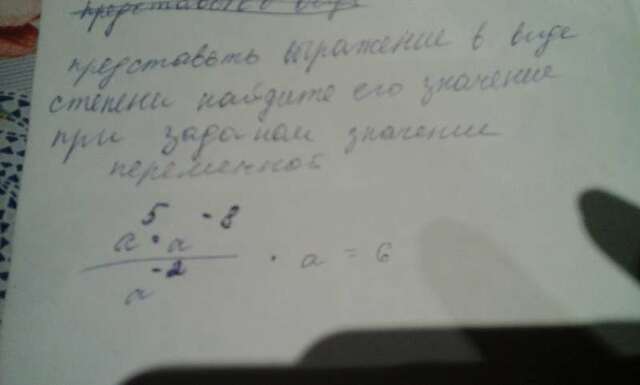 представить выражение в виде
степени найдите его значение
при заданом значении
переменной
a⁵ · a⁻⁸
a⁻²
· a = 6